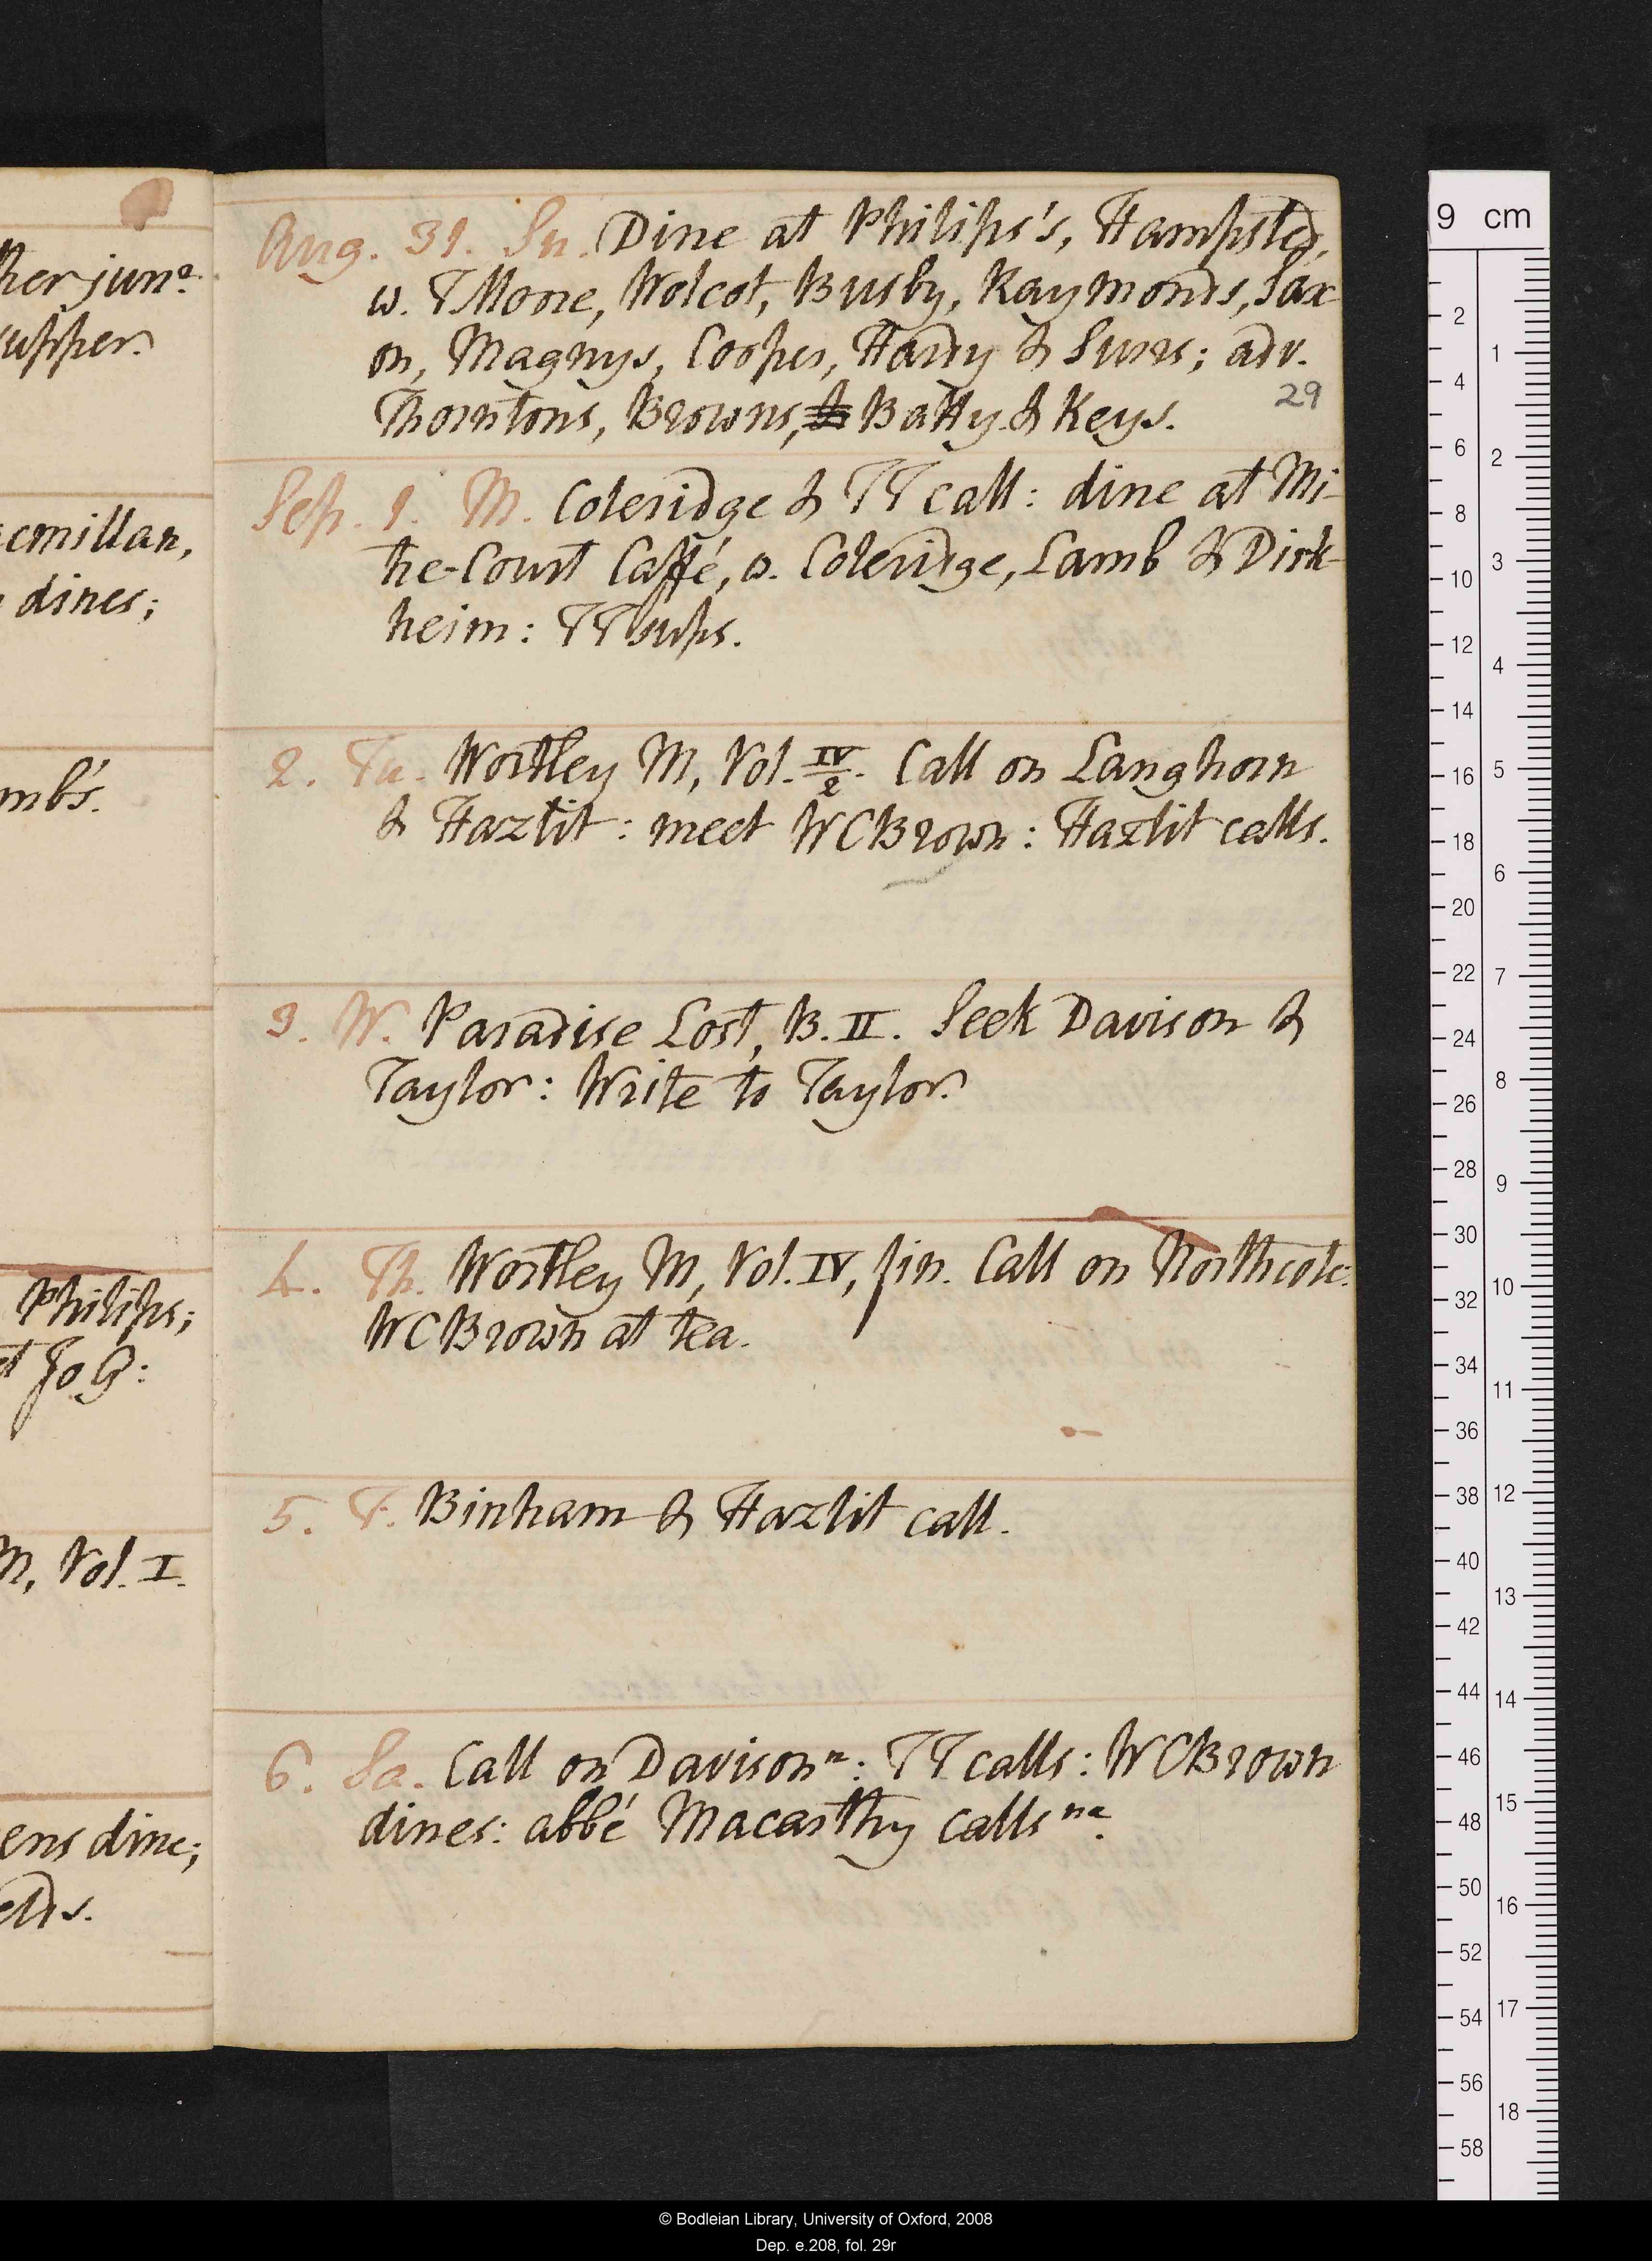 her junr.
supper.
cmillan,
dines;
mb's.
Philips;
et Jo G:
M, Vol. I.
ens dine;
elds.
Aug. 31. Su. Dine at Philips's, Hampsted,
w. T Moore, Wolcot, Busby, Raymonds, Sax-
on, Magnys, Cooper, Hardy & Surr; adv.
Thorntons, Browns, & Batty & Keys.
29
Sep. 1. M. Coleridge & TT call: dine at Mi-
tre-Court Caffé, w. Coleridge, Lamb & Dirk-
heim: TT sups.
2. Tu. Wortley M, Vol. IV/2. Call on Langhorn
& Hazlit: meet WCBrown: Hazlit calls.
3. W. Paradise Lost, B. II. Seek Davison &
Taylor: Write to Taylor.
4. Th. Wortley M, Vol. IV, fin. Call on Northcote:
WCBrown at tea.
5. F. Binham & Hazlit call.
6. Sa. Call on Davison n: TT calls: WCBrown
dines: abbé Macarthy calls na.
9 cm
2
4
6
8
10
12
14
16
18
20
22
24
26
28
30
32
34
36
38
40
42
44
46
48
50
52
54
56
58
1
2
3
4
5
6
7
8
9
10
11
12
13
14
15
16
17
18
© Bodleian Library, University of Oxford, 2008
Dep. e.208, fol. 29r